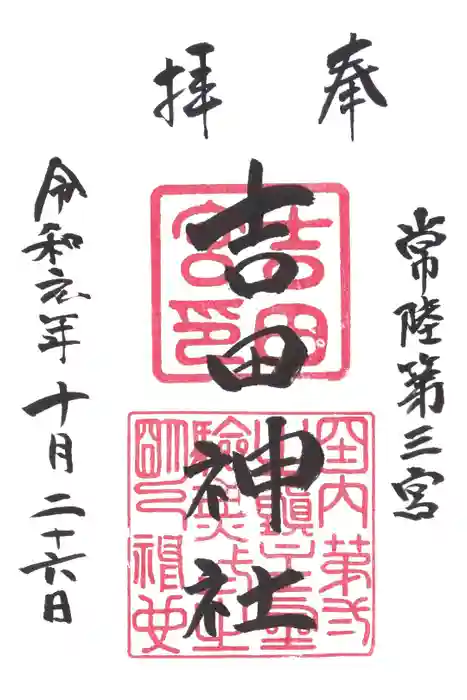 奉拝
常陸第三宮
吉田神社
令和元年十月二十六日
吉田宮印